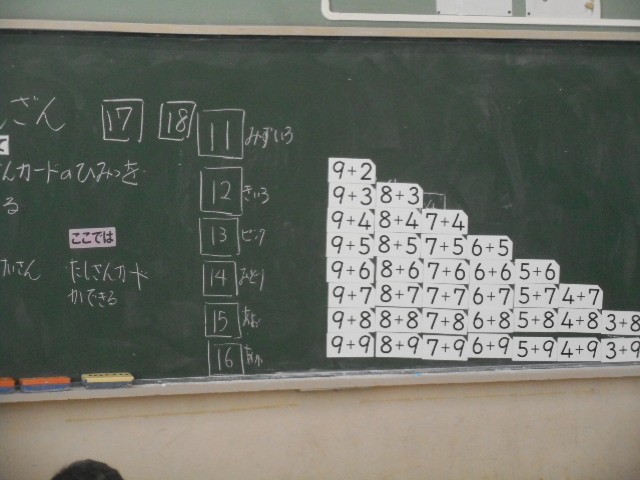 ざん
17 18
11 みずいろ
んカードのひみつを
る
12 きいろ
13 ピンク
ここでは
たしざんカード
ができる
14 みどり
15
16
9+2
9+3 8+3
9+4 8+4 7+4
9+5 8+5 7+5 6+5
9+6 8+6 7+6 6+6 5+6
9+7 8+7 7+7 6+7 5+7 4+7
9+8 8+8 7+8 6+8 5+8 4+8 3+8
9+9 8+9 7+9 6+9 5+9 4+9 3+9